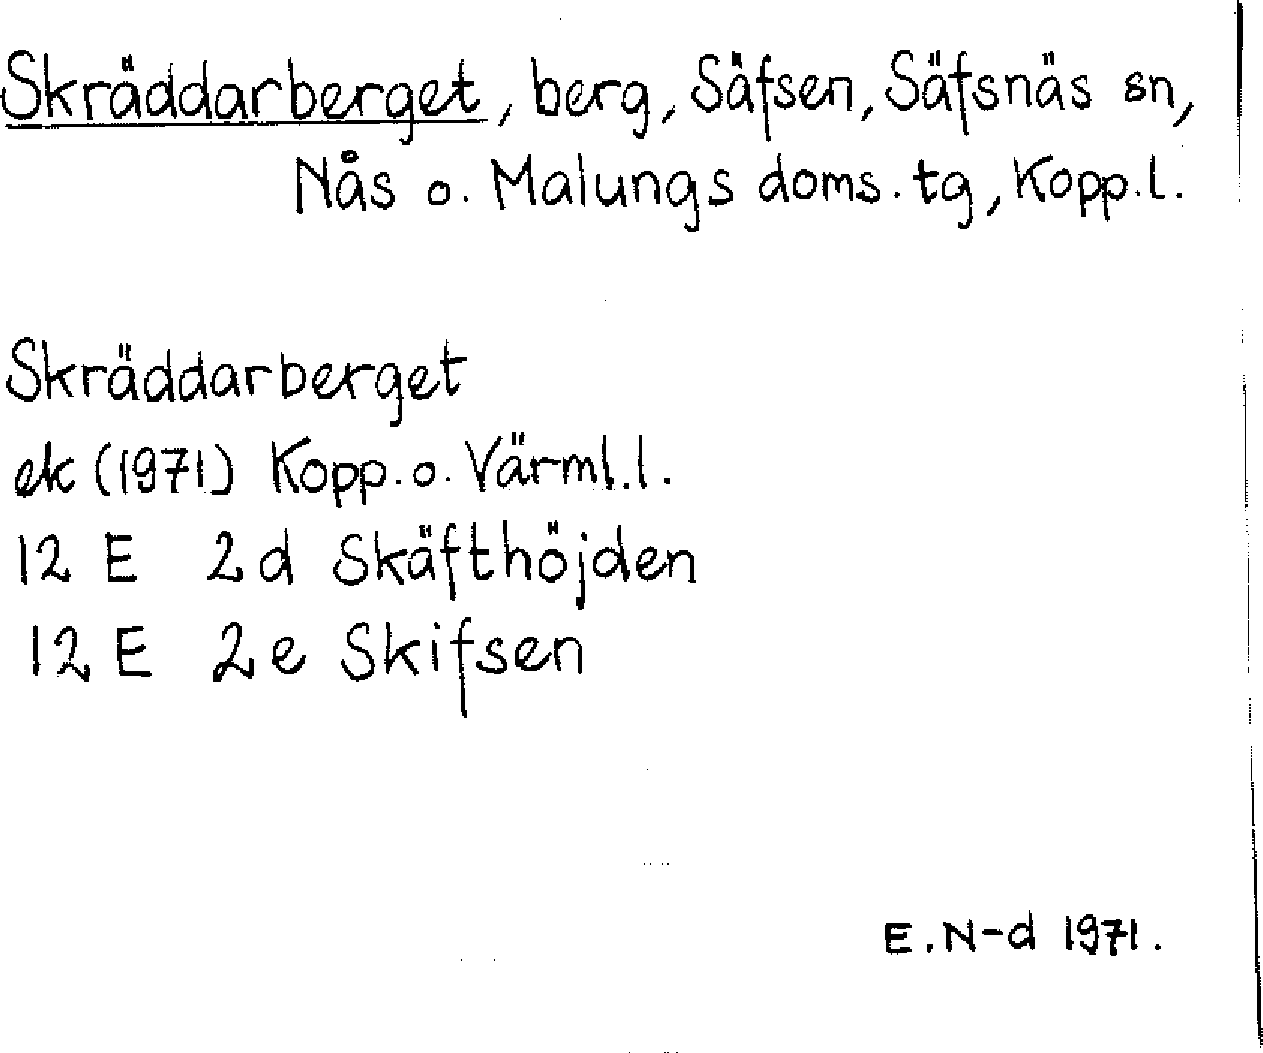 Skräddarberget, berg, Säfsen, Säfsnäs sn,
Nås o. Malungs doms. tg, Kopp. l.
Skräddarberget
ek (1971) Kopp. o. Värml. l.
12 E 2d Skäfthöjden
12 E 2e Skifsen
E. N-d 1971.